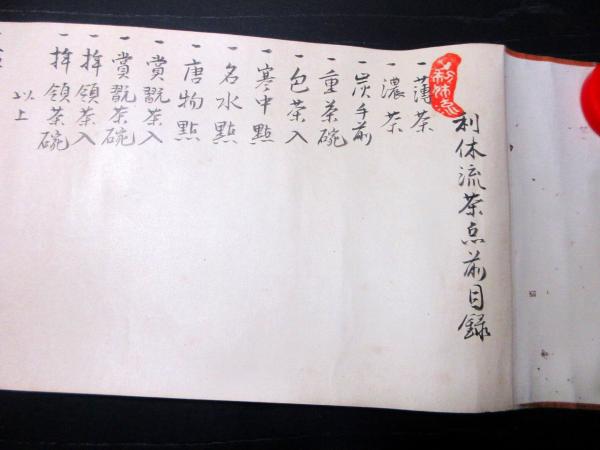 利休流
利休流茶点前目録
一薄茶
一濃茶
一炭手前
一重茶碗
一包茶入
一寒中點
一名水點
一唐物點
一賞翫茶入
一賞翫茶碗
一拝領茶入
一拝領茶碗
以上